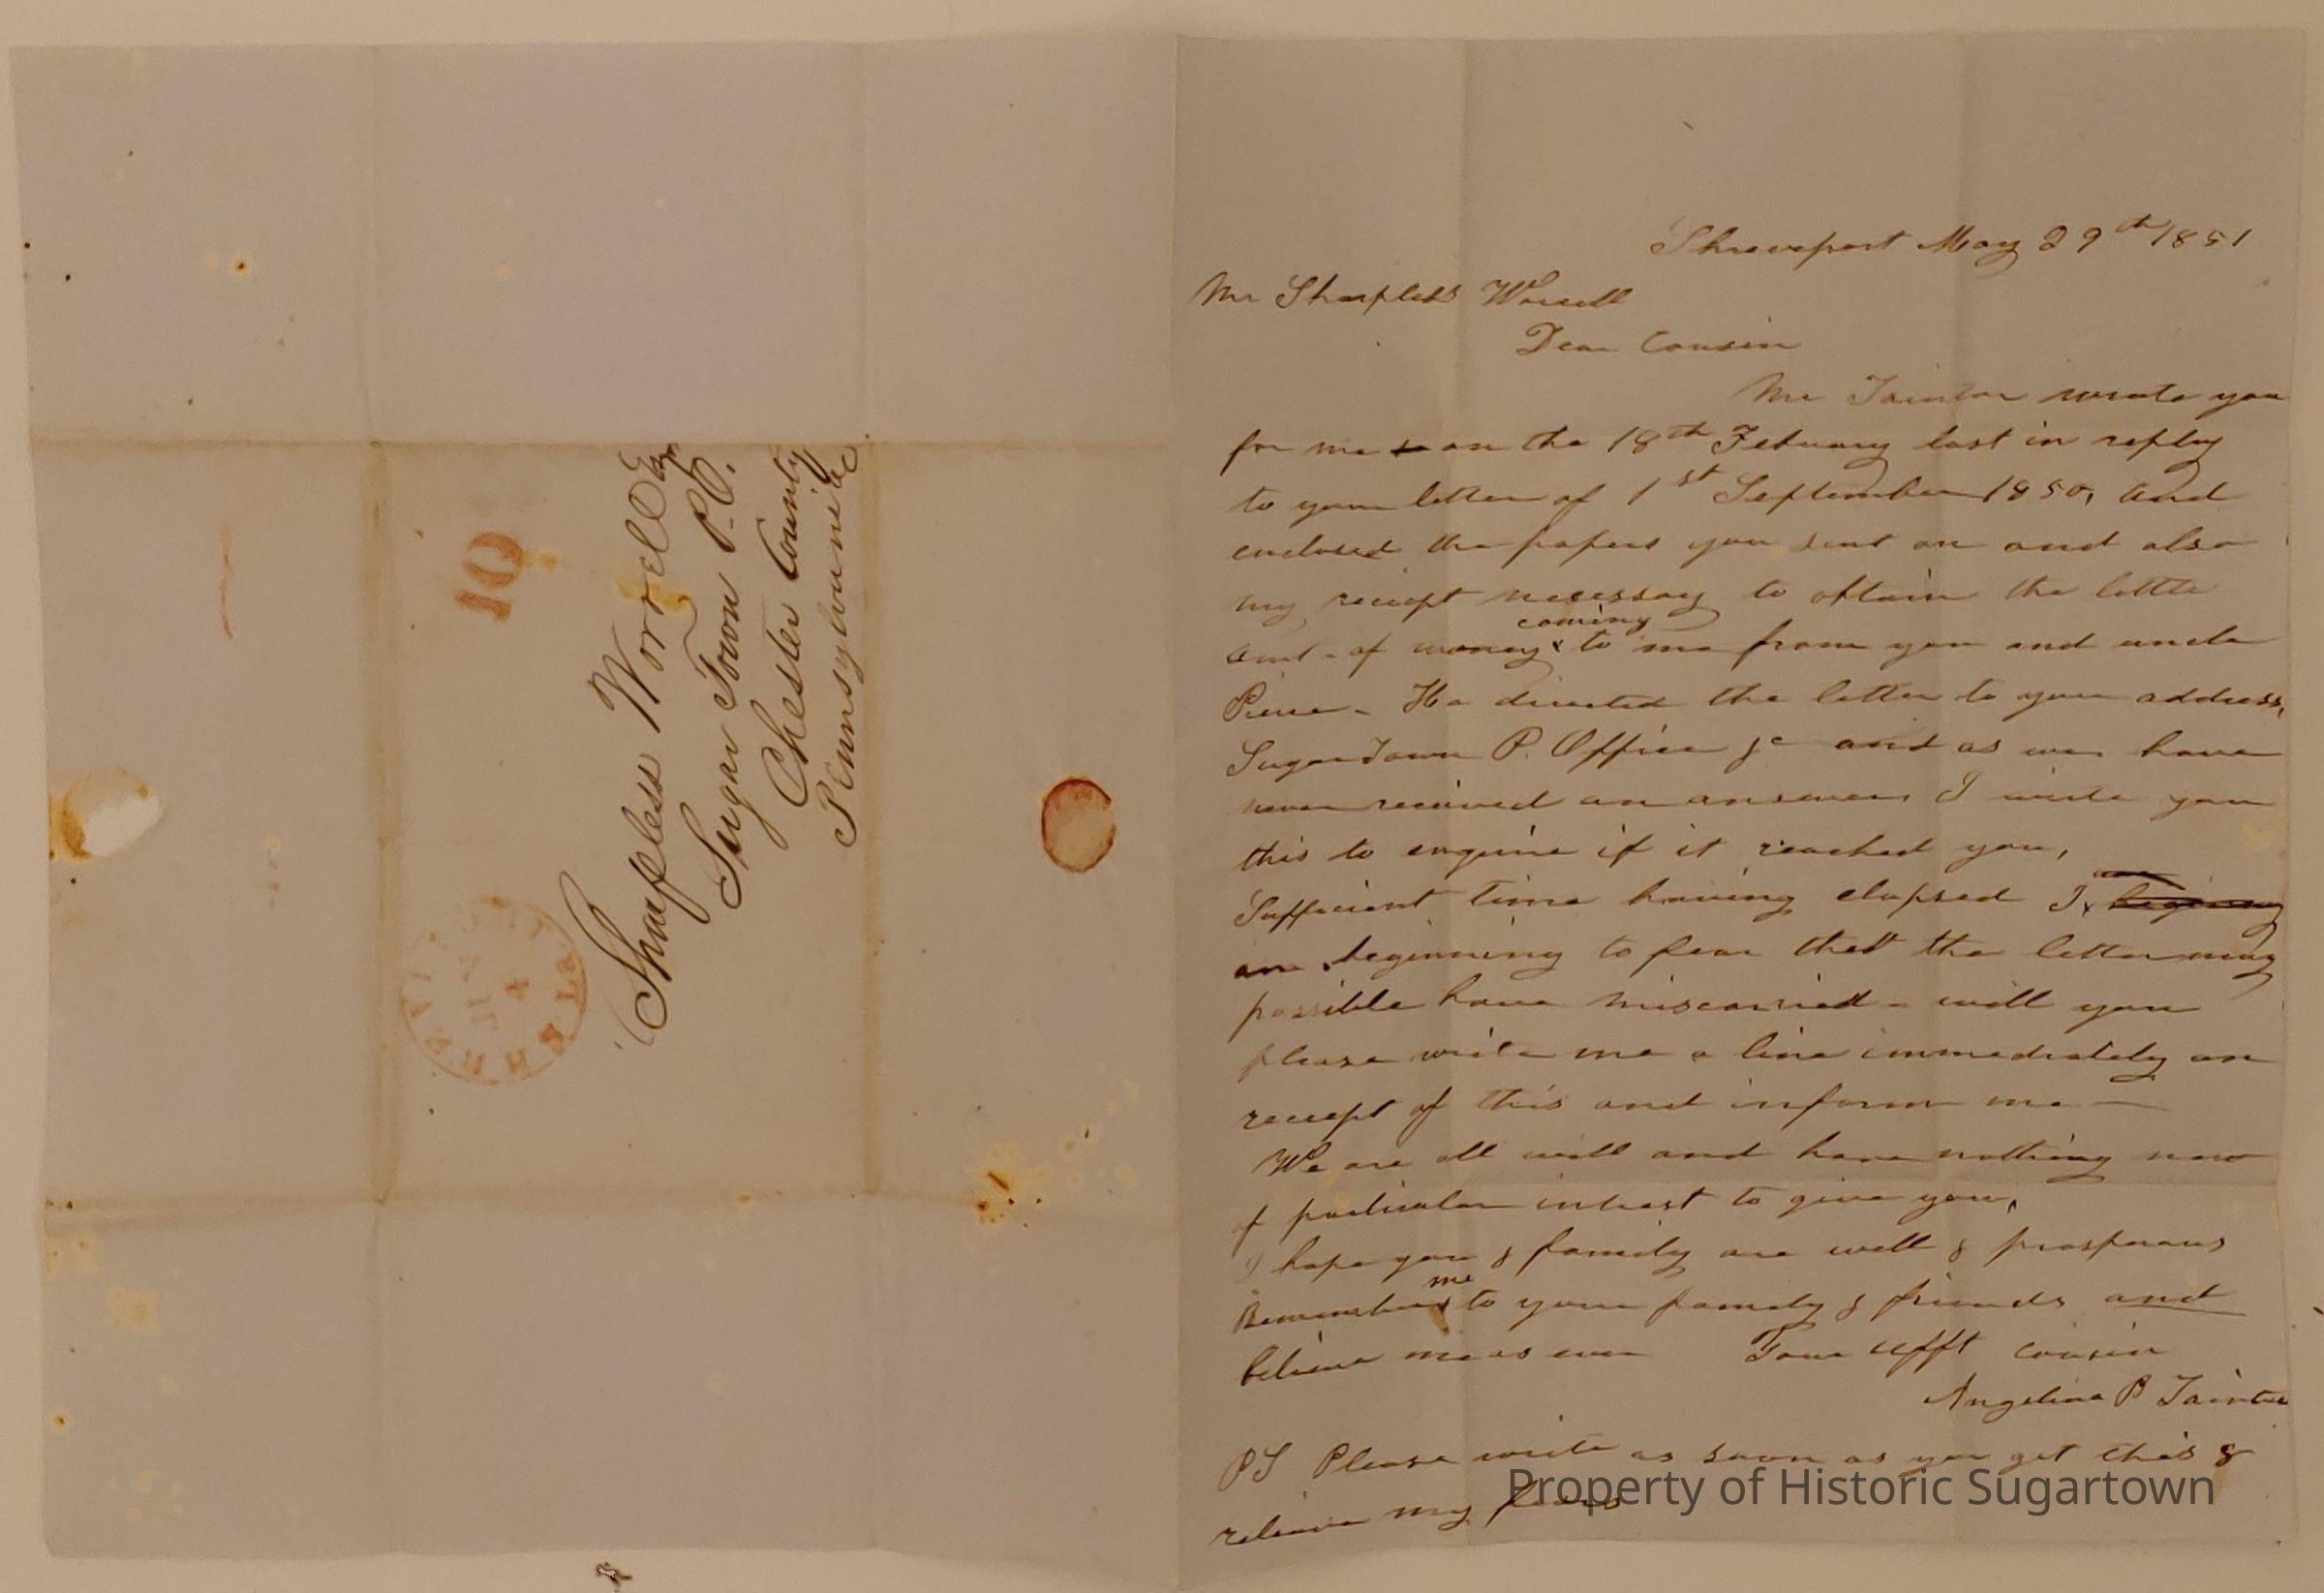 10
Sharpless Worrell Esqr
Sugar Town P.O.
Chester County
Pennsylvania
JUN
4
La
Shreveport May 29th 1851
Mr Sharpless Worrell
Dear Cousin
Mr Taintor wrote you
for me to on the 18th Febuary last in reply
to your letter of 1st September 1850, and
enclosed the papers you sent on and also
my reciept necessary to obtain the little
amt. of money coming to me from you and uncle
Pierce - He directed the letter to your address,
Sugar Town P. Office &c and as we have
never received an answer I write you
this to enquire if it reached you,
Sufficient time having elapsed I am begining
am beginning to fear that the letter may
possible have miscarried - will you
please write me a line immediately on
reciept of this and inform me -
We are all well and have nothing new
of particular intrest to give you,
I hope you & family are well & prosperous
Remember me to your family & friends and
believe me as ever Your afft cousin
Angelina P Taintor
PS Please write as soon as you get this &
relieve my fears
Property of Historic Sugartown